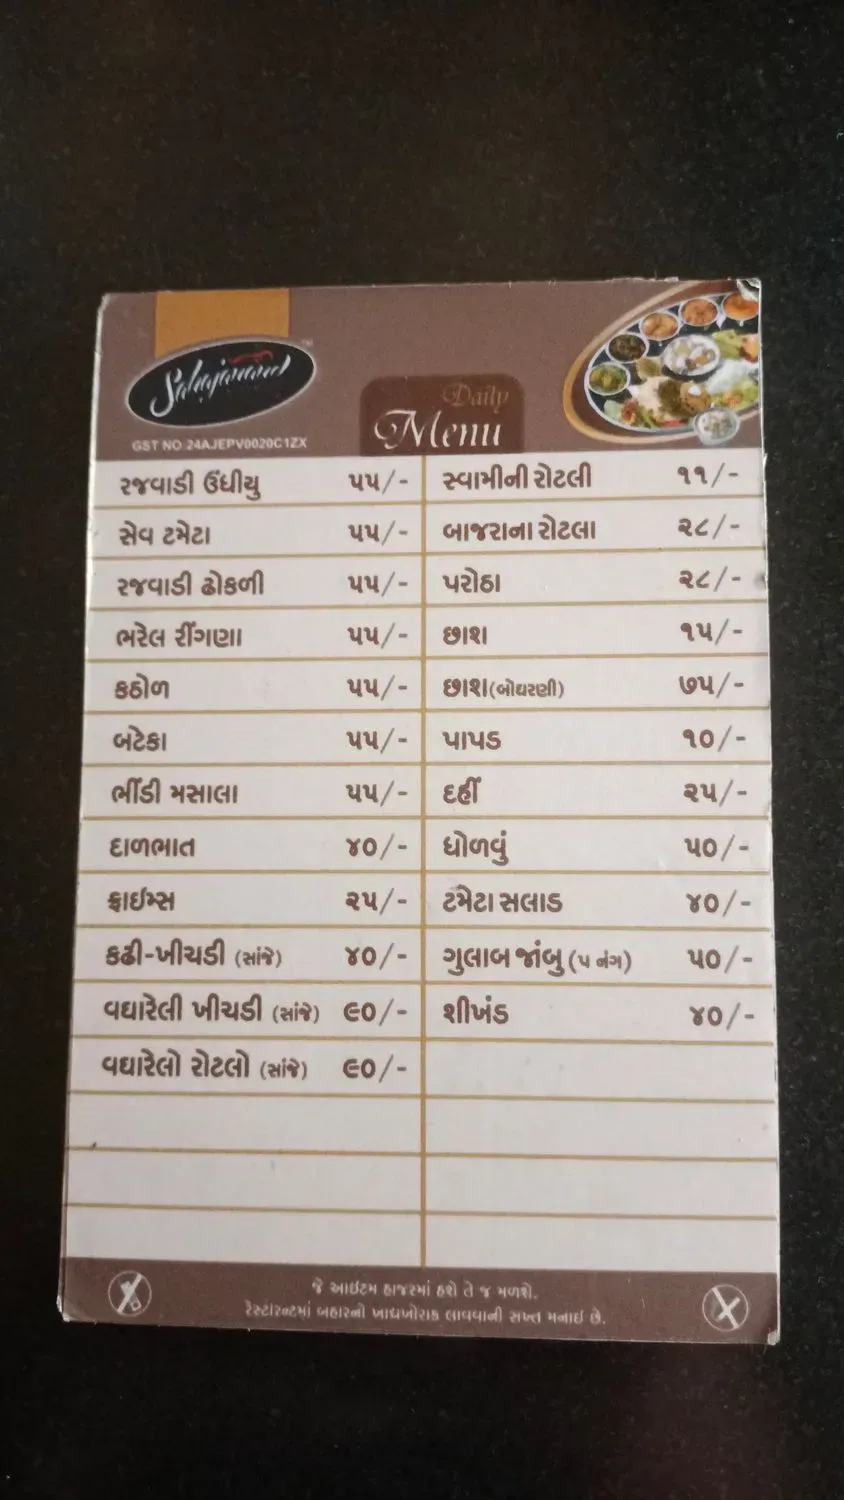 Sahajanand
TM
GST NO 24AJEPV0020C1ZX
Daily
Menu
રજવાડી ઉંધીયુ ૫૫/-
સેવ ટમેટા ૫૫/-
રજવાડી ઢોકળી ૫૫/-
ભરેલ રીંગણા ૫૫/-
કઠોળ ૫૫/-
બટેકા ૫૫/-
ભીંડી મસાલા ૫૫/-
દાળભાત ૪૦/-
ફ્રાઈમ્સ ૨૫/-
કઢી-ખીચડી (સાંજે) ૪૦/-
વઘારેલી ખીચડી (સાંજે) ૯૦/-
વઘારેલો રોટલો (સાંજે) ૯૦/-
સ્વામીની રોટલી ૧૧/-
બાજરાના રોટલા ૨૮/-
પરોઠા ૨૮/-
છાશ ૧૫/-
છાશ(બોઘરણી) ૭૫/-
પાપડ ૧૦/-
દહીં ૨૫/-
ધોળવું ૫૦/-
ટમેટા સલાડ ૪૦/-
ગુલાબ જાંબુ (૫ નંગ) ૫૦/-
શીખંડ ૪૦/-
જે આઇટમ હાજરમાં હશે તે જ મળશે.
રેસ્ટોરન્ટમાં બહારનો ખાદ્યખોરાક લાવવાની સખ્ત મનાઇ છે.